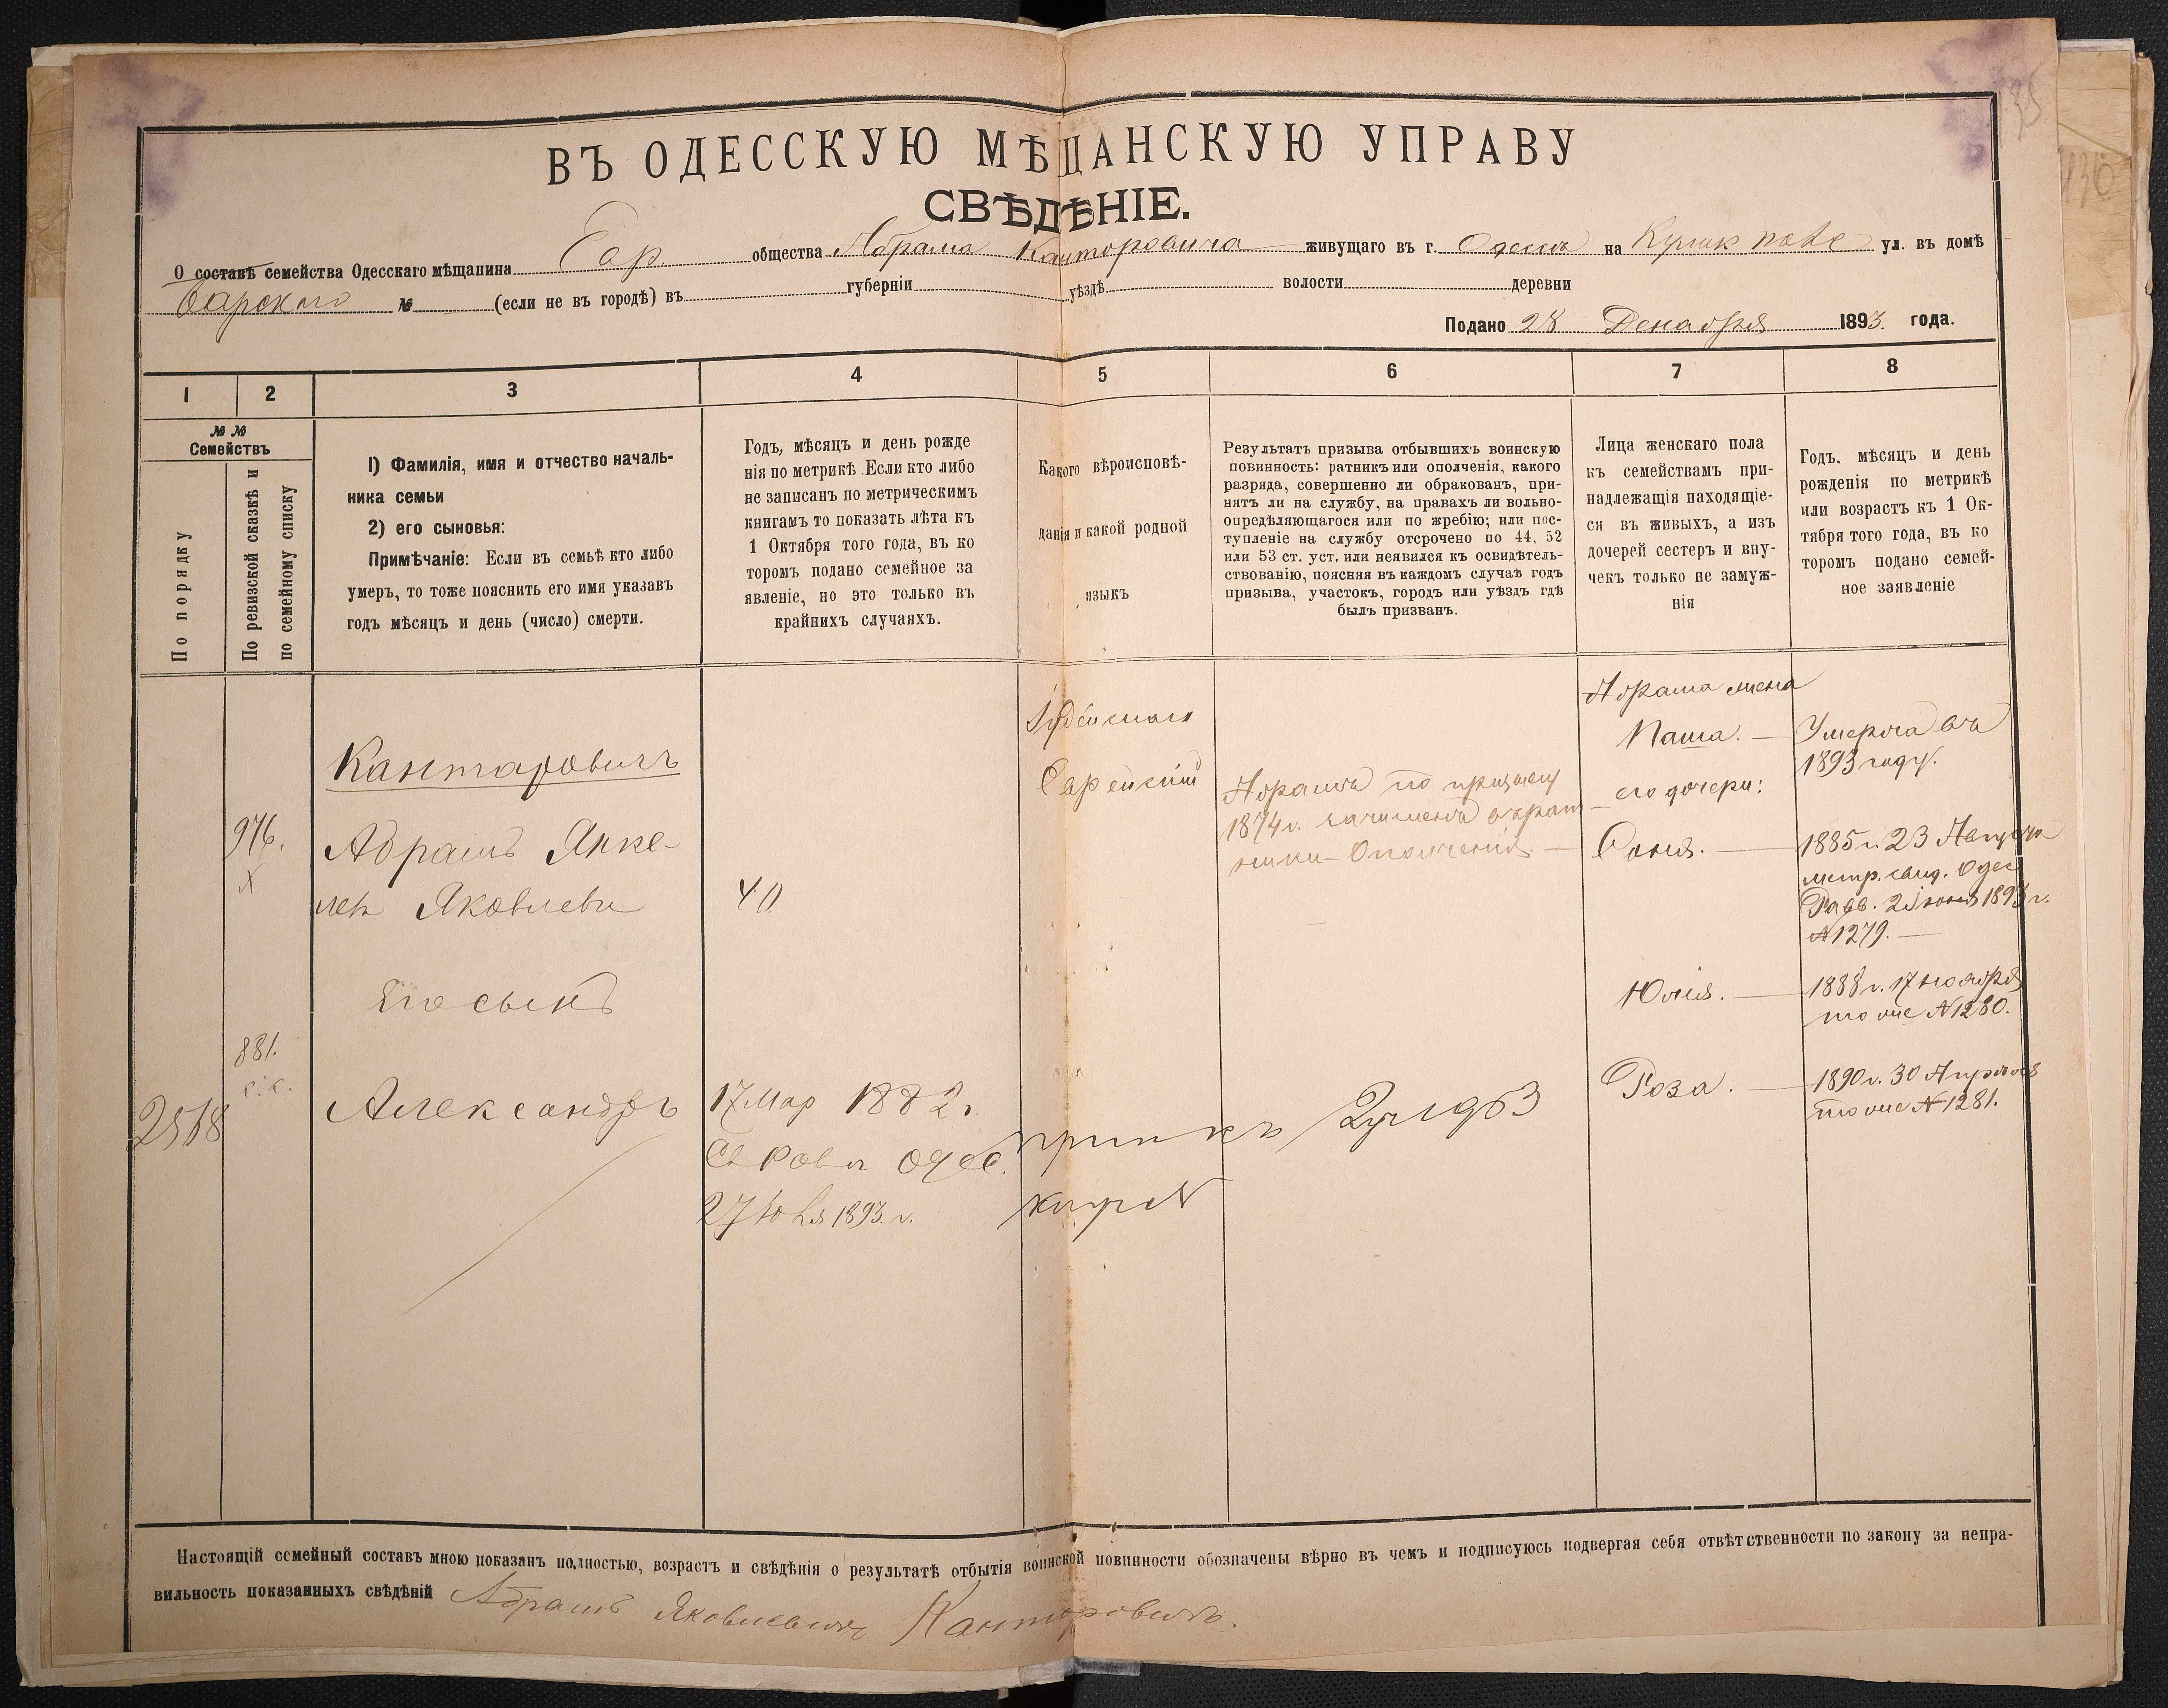 ВЪ ОДЕССКУЮ МѢЩАНСКУЮ УПРАВУ
СВѢДѢНІЕ.
О составѣ семейства Одесскаго мѣщанина Евр. общества Абрама Канторовича живущаго въ г. Одессѣ на Кулик. поле ул. въ домѣ
№ (если не въ городѣ) въ губерніи уѣздѣ волости деревни
Подано 28 Декабря 1893. года.
1 2 3 4 5 6 7 8
№ №
Семействъ
По порядку
По ревизской сказкѣ и
по семейному списку
1) Фамилія, имя и отчество началь-
ника семьи
2) его сыновья:
Примѣчаніе: Если въ семьѣ кто либо
умеръ, то тоже пояснить его имя указавъ
годъ мѣсяцъ и день (число) смерти.
Годъ, мѣсяцъ и день рожде
нія по метрикѣ Если кто либо
не записанъ по метрическимъ
книгамъ то показать лѣта къ
1 Октября того года, въ ко
торомъ подано семейное за
явленіе, но это только въ
крайнихъ случаяхъ.
Какого вѣроисповѣ-
данія и какой родной
языкъ
Результатъ призыва отбывшихъ воинскую
повинность: ратникъ или ополченія, какого
разряда, совершенно ли обракованъ, при-
нятъ ли на службу, на правахъ ли вольно-
опредѣляющагося или по жребію; или пос-
тупленіе на службу отсрочено по 44, 52
или 53 ст. уст. или неявился къ освидѣтель-
ствованію, поясняя въ каждомъ случаѣ годъ
призыва, участокъ, городъ или уѣздъ гдѣ
былъ призванъ.
Лица женскаго пола
къ семействамъ при-
надлежащія находящіе-
ся въ живыхъ, а изъ
дочерей сестеръ и вну-
чекъ только не замуж-
нія
Годъ, мѣсяцъ и день
рожденія по метрикѣ
или возрастъ къ 1 Ок-
тября того года, въ ко
торомъ подано семей-
ное заявленіе
Кантаровичъ
976.
X
Абрамъ Янке-
лев Яковлевъ
40
Его сынъ
881.
с. с.
2518
Александръ
17 Мар 1882 г.
Св Рав Одес.
27 Юля 1893. г.
Іудейскаго
Еврейскій
Абрамъ по призыву
1874 г. зачисленъ в рат-
ники Ополченія.
Абрама жена
Паша. — Умерла въ
1893 году.
его дочери:
Соня. — 1885 г. 23 Августа
метр. свид. Одес
Равв. 2 Іюня 1893 г.
№ 1279. —
Юлія. — 1888 г. 17 ноября
тоже № 1280.
Роза. — 1890 г. 30 Апреля
тоже № 1281.
Настоящій семейный составъ мною показанъ полностью, возрастъ и свѣдѣнія о результатѣ отбытія воинской повинности обозначены вѣрно въ чемъ и подписуюсь подвергая себя отвѣтственности по закону за непра-
вильность показанныхъ свѣдѣній Абрамъ Яковлевичъ Канторовичъ.
136